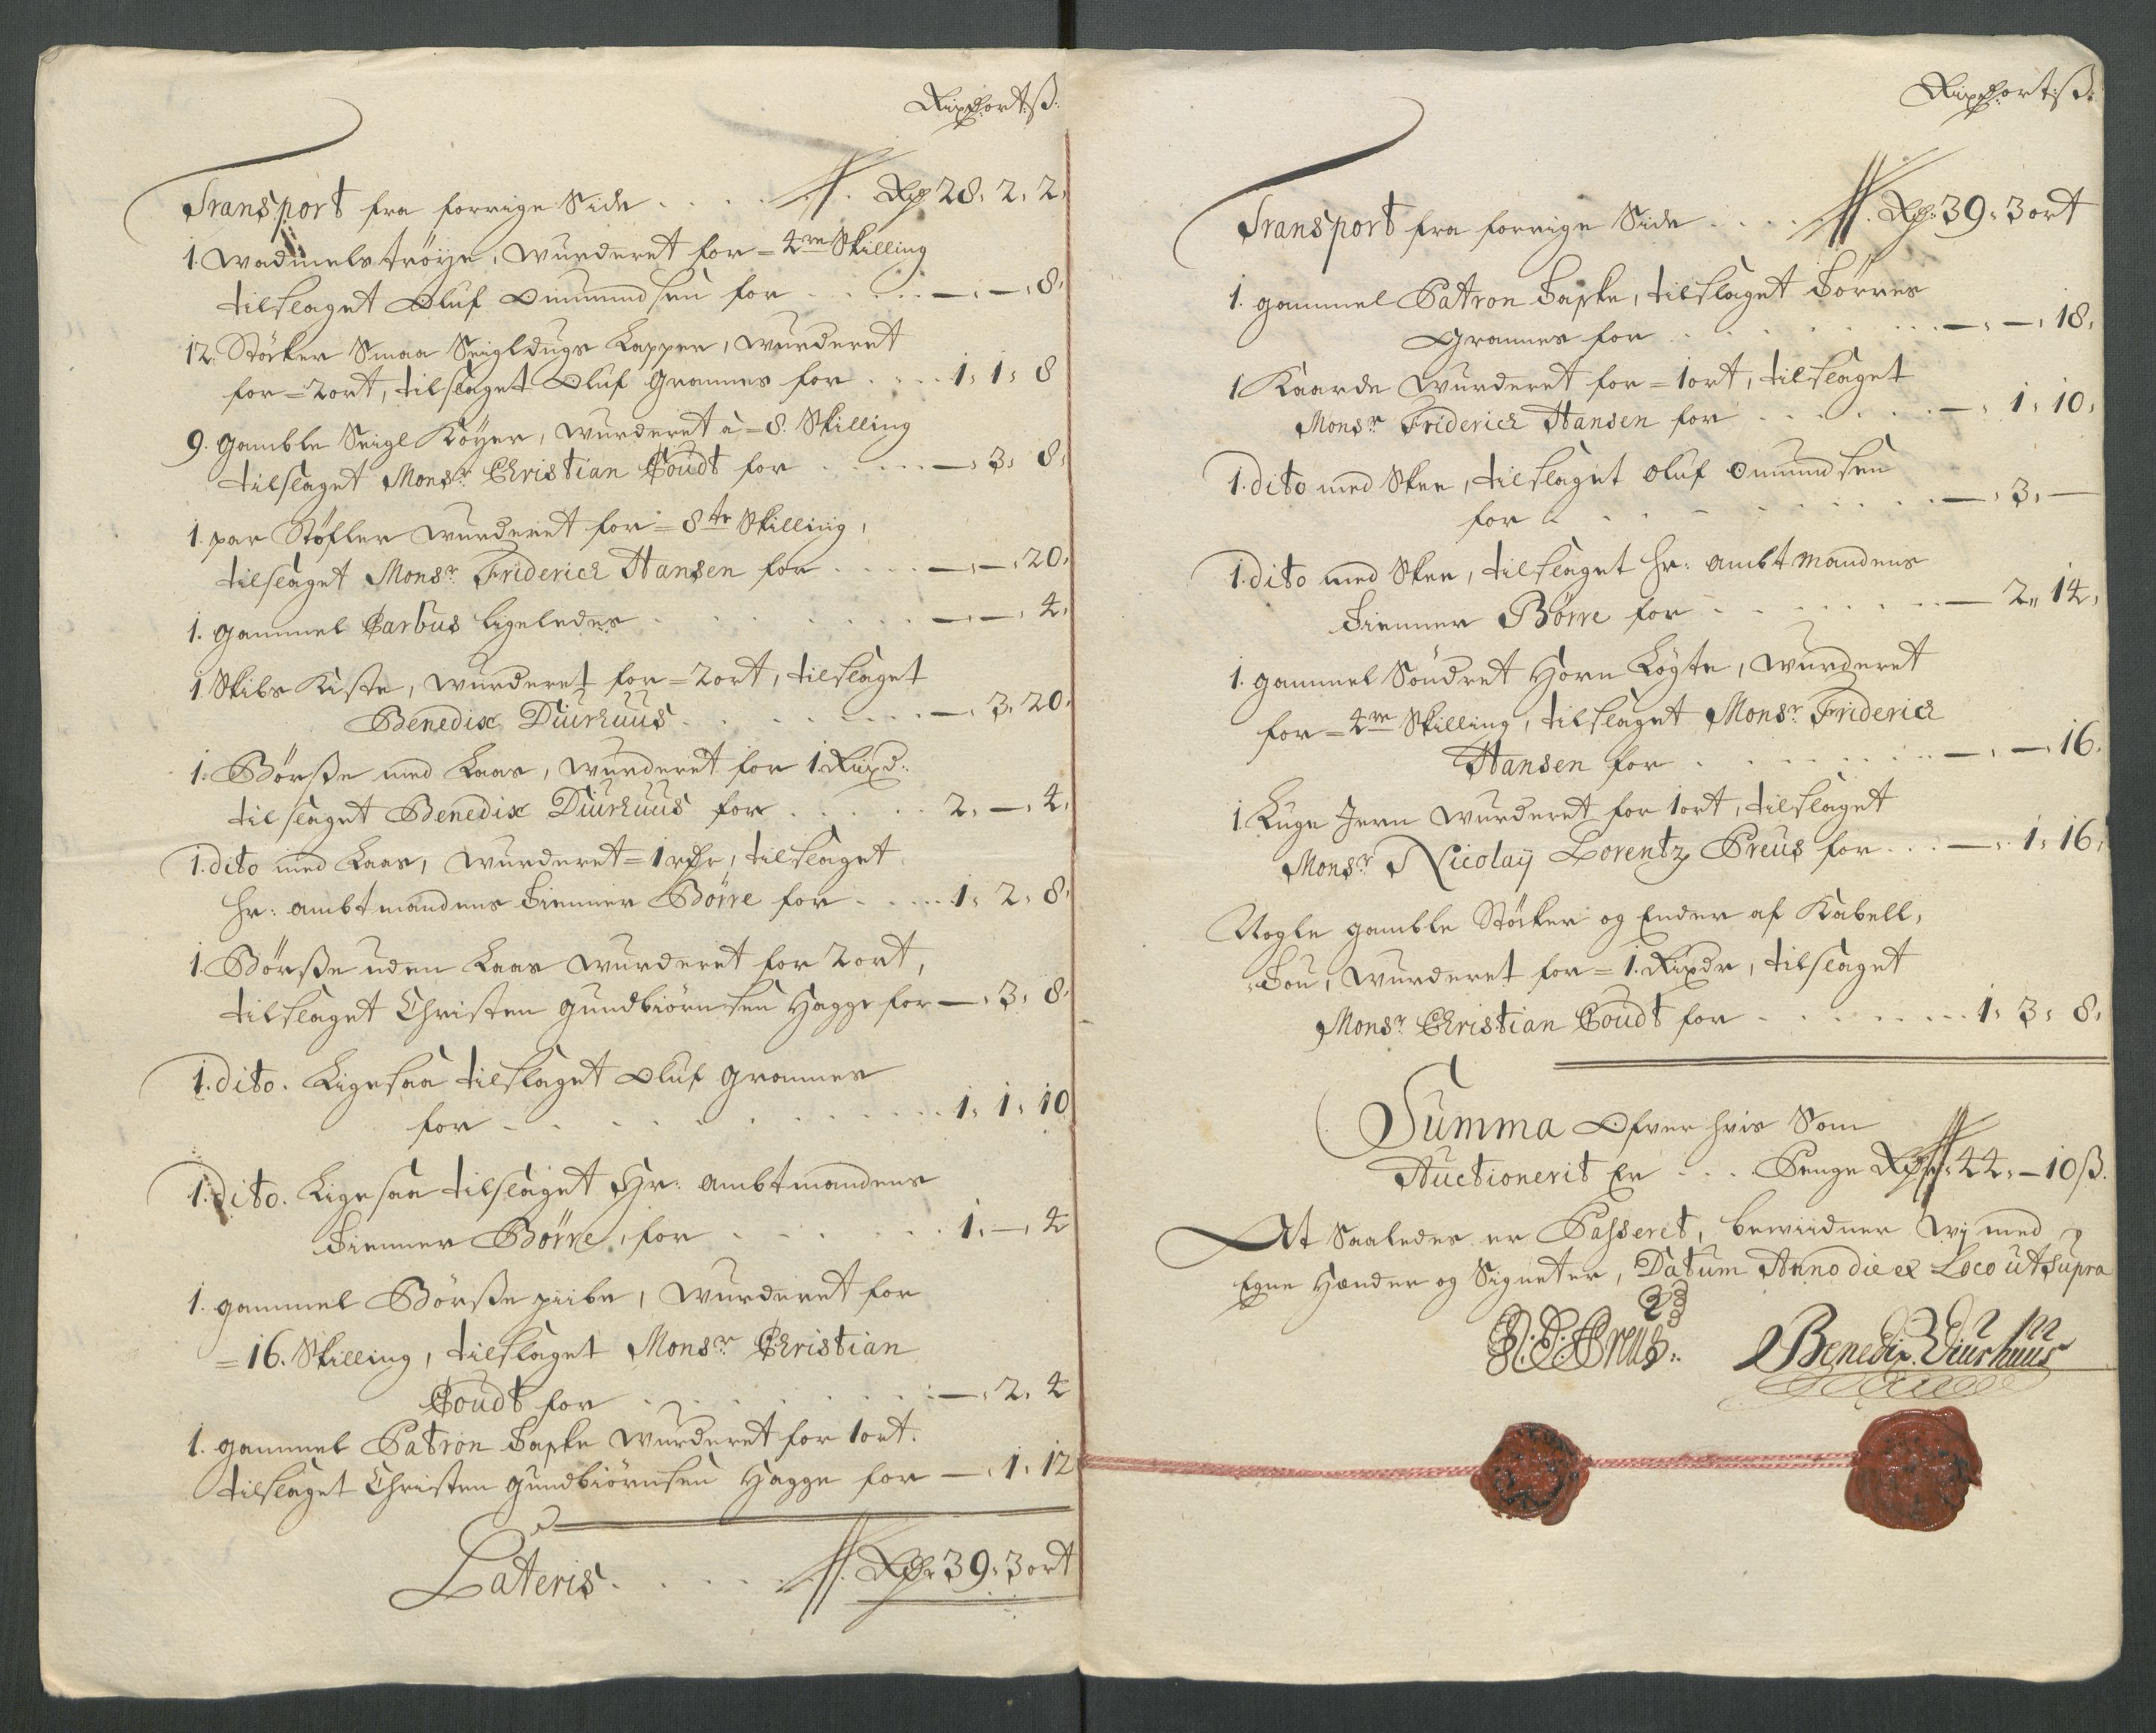 Rixd: ort: ß:
Transport fra forrige Side . . . . Rd 28. 2. 2.
1. Wadmels trøye, Wurderet for = 4re Skilling
tilslaget Oluf Omundsen for . . . . — . — . 8.
12. Støcker Smaa Seigldugs Lapper, Wurderet
for = 2 ort, tilslaget Oluf Grannes for . . . . 1. 1. 8
9. gamble Seigl Køyer, Wurderet à = 8. Skilling
tilslaget Monsr. Christian Coudt for . . . . — . 3. 8.
1. par Støfler Wurderet for = 8te Skilling,
tilslaget Monsr. Friderich Hansen for . . . . — . — . 20.
1. gammel Carbus ligeledes . . . . — . — . 4.
1 Skibs Kiste, Wurderet for = 2 ort, tilslaget
Benedix Diurhuus . . . . — . 3. 20.
1. Børsse med Laas, Wurderet for 1 Rixd:
tilslaget Benedix Diurhuus for . . . . 2. — . 4.
1. dito med Laas, Wurderet = 1 rdr, tilslaget
hr: ambtmandens Tienner Børre for . . . . 1. 2. 8.
1. Børsse uden Laas Wurderet for 2 ort,
tilslaget Christen Gundbiørnsen Hagge for — . 3. 8.
1. dito. Ligesaa tilslaget Oluf Grannes
for . . . . 1. 1. 10
1. dito. Ligesaa tilslaget Hr: ambtmandens
Tienner Børre, for . . . . 1. — . 4
1. gammel Børsse piibe, Wurderet for
= 16. Skilling, tilslaget Monsr. Christian
Coudt for . . . . — . 2. 4
1. gammel Patron Taske Wurderet for 1 ort.
tilslaget Christen Gundbiørnsen Hagge for — . 1. 12
Lateris . . . . Rdr 39. 3 ort
Rixd: ort: ß:
Transport fra forrige Side . . . . Rd: 39. 3 ort
1. gammel Patron Taske, tilslaget Børres
Grannes for . . . . — . — . 18.
1 Kaarde Wurderet for = 1 ort, tilslaget
Monsr. Friderich Hansen for . . . . — . 1. 10.
1. dito med Skee, tilslaget Oluf Omundsen
for . . . . — . 3. —
1. dito med Skee, tilslaget hr: ambtmandens
Tienner Børre for . . . . — 2. 14.
1. gammel Søndret Horn Løgte, Wurderet
for = 4re Skilling, tilslaget Monsr. Friderich
Hansen for . . . . — . — . 16.
1. Luge Jern Wurderet for 1 ort, tilslaget
Monsr. Nicolaij Lorentz Preus for . . . — . 1. 16.
Nogle gamble Støcker og Ender af Kabell,
Tou, Wurderet for = 1. Rixdr, tilslaget
Monsr. Christian Coudt for . . . . 1. 3. 8.
Summa Ofver hvis Som
Auctionerit Er . . . Penge Rdr. 44. — 10 ß.
At Saaledes er Passeret, bewiidner Wj med
Egne Hænder og Signeter, Datum Anno die et Loco ut Supra
N: L: Preus:
Benedix Diurhuus